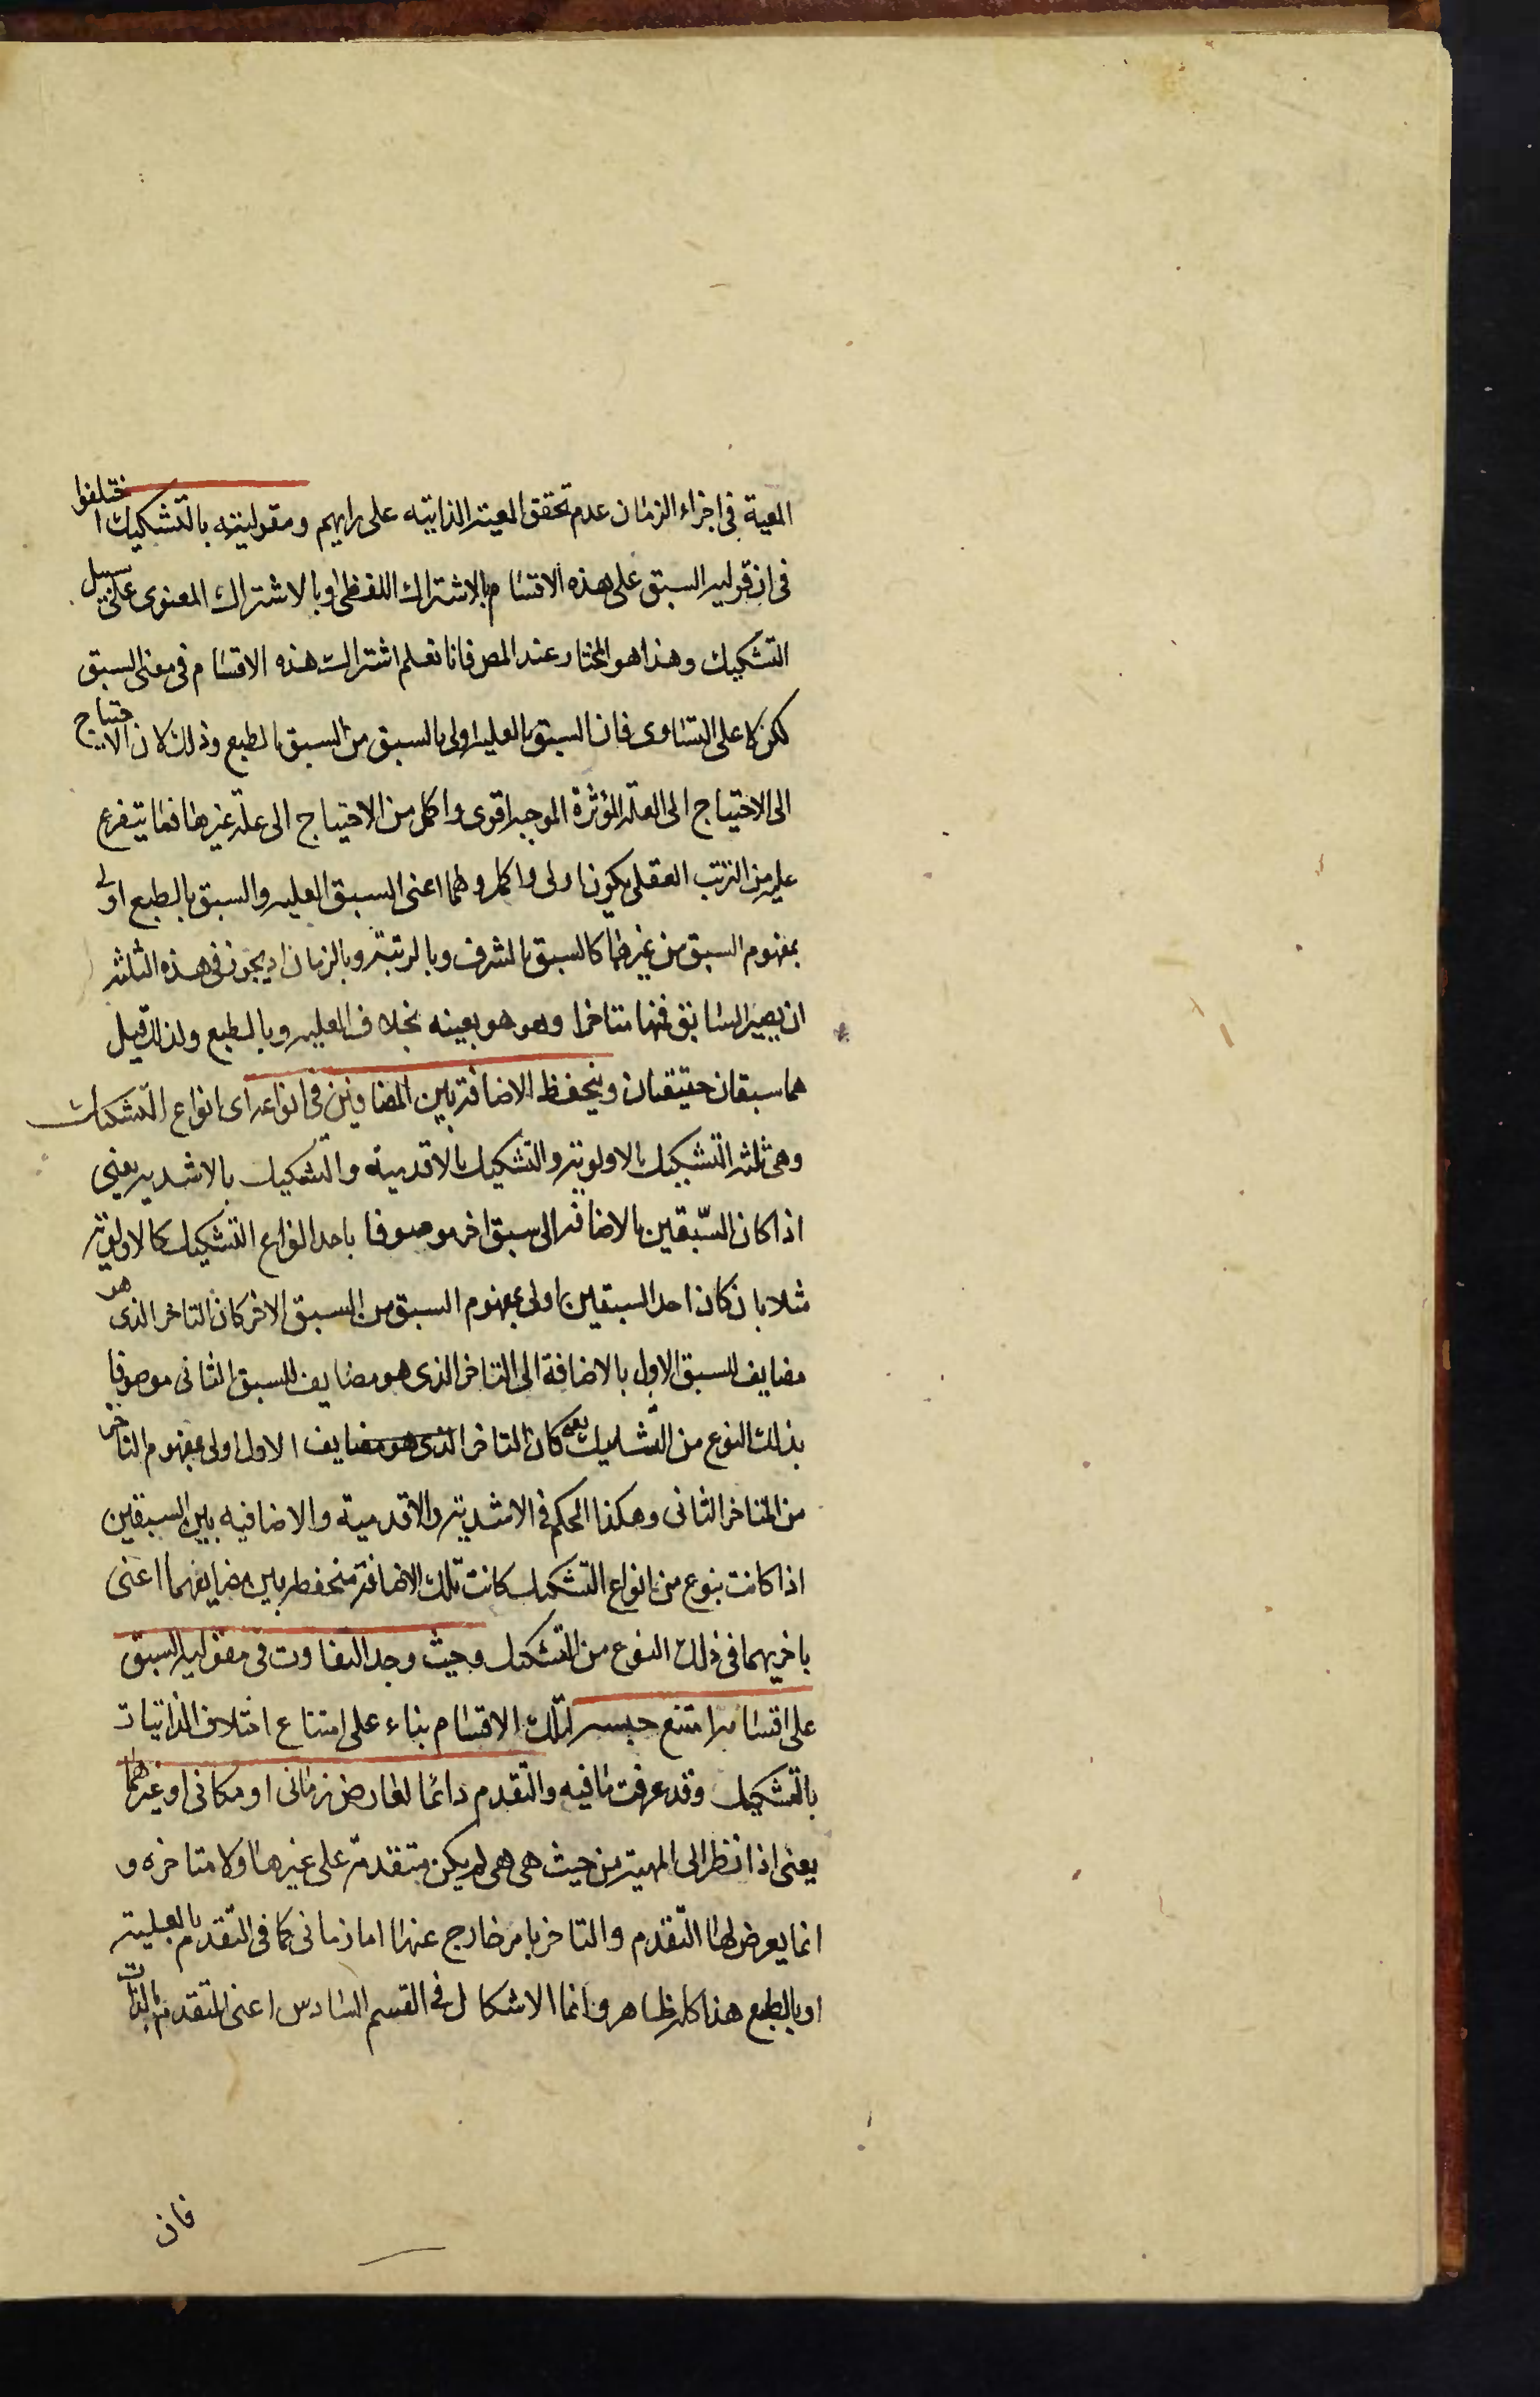 المعية فى اجزاء الزمان عدم تحقق المعية الذاتيه على رايهم ومقوليته بالتشكيك اختلفوا
فى ان قوليه السبق على هذه الاقسام بالاشتراك اللفظى او بالاشتراك المعنوى على سبيل
التشكيك وهذا هو المختار عند المص فانا نعلم اشتراك هذه الاقسام فى معنى السبق
لكن لا على التساوى فان السبق بالعليه اولى بالسبق من السبق بالطبع وذلك لان الاحتياج
الى الاحتياج الى العلة المؤثرة الموجبه اقوى واكمل من الاحتياج الى علة غيرها فما يتفرع
عليه من الترتب العقلى يكون اولى واكمل وهما اعنى السبق العليه والسبق بالطبع اولى
بمفهوم السبق من غيرهما كالسبق بالشرف وبالرتبة وبالزمان اذ يجوز فى هذه الثلثه
ان يصير السابق فيها متاخرا وهو هو بعينه بخلاف العليه وبالطبع ولذلك قيل
هما سبقان حقيقيان وينحفظ الاضافة بين المضافين فى انواعه اى انواع التشكيك
وهى ثلثه التشكيك بالاولوية والتشكيك بالاقدمية والتشكيك بالاشديه يعنى
اذا كان السّبقين بالاضافه الى سبق اخر موصوفا باحد انواع التشكيك كالاولوية
مثلا بان كان احد السبقين اولى بمفهوم السبق من السبق الاخر كان التاخر الذى هو
مضايف للسبق الاول بالاضافة الى التاخر الذى هو مضايف للسبق الثانى موصوفا
بذلك النوع من التشكيك يعنى كان التاخر الذى هو مضايف الاول اولى بمفهوم التاخر
من المتاخر الثانى وهكذا الحكم فى الاشدية والاقدمية والاضافيه بين السبقين
اذا كانت بنوع من انواع التشكيك كانت تلك الاضافة منحفظه بين مضايفهما اعنى
باخريهما فى ذلك النوع من التشكيك وحيث وجد التفاوت فى مقوليه السبق
على اقسامه امتنع جنسيه لتلك الاقسام بناء على امتناع اختلاف الذاتيات
بالتشكيك وقد عرفت ما فيه والتقدم دائما لعارض زمانى او مكانى او غيرهما
يعنى اذا نظر الى المهية من حيث هى هى لم يكن متقدمة على غيرها ولا متاخره و
انما يعرض لها التقدم والتاخر بامر خارج عنها اما زمانى كما فى التقدم بالعلية
او بالطبع هذا كله ظاهر وانما الاشكال فى القسم السادس اعنى التقدم بالذات
فان